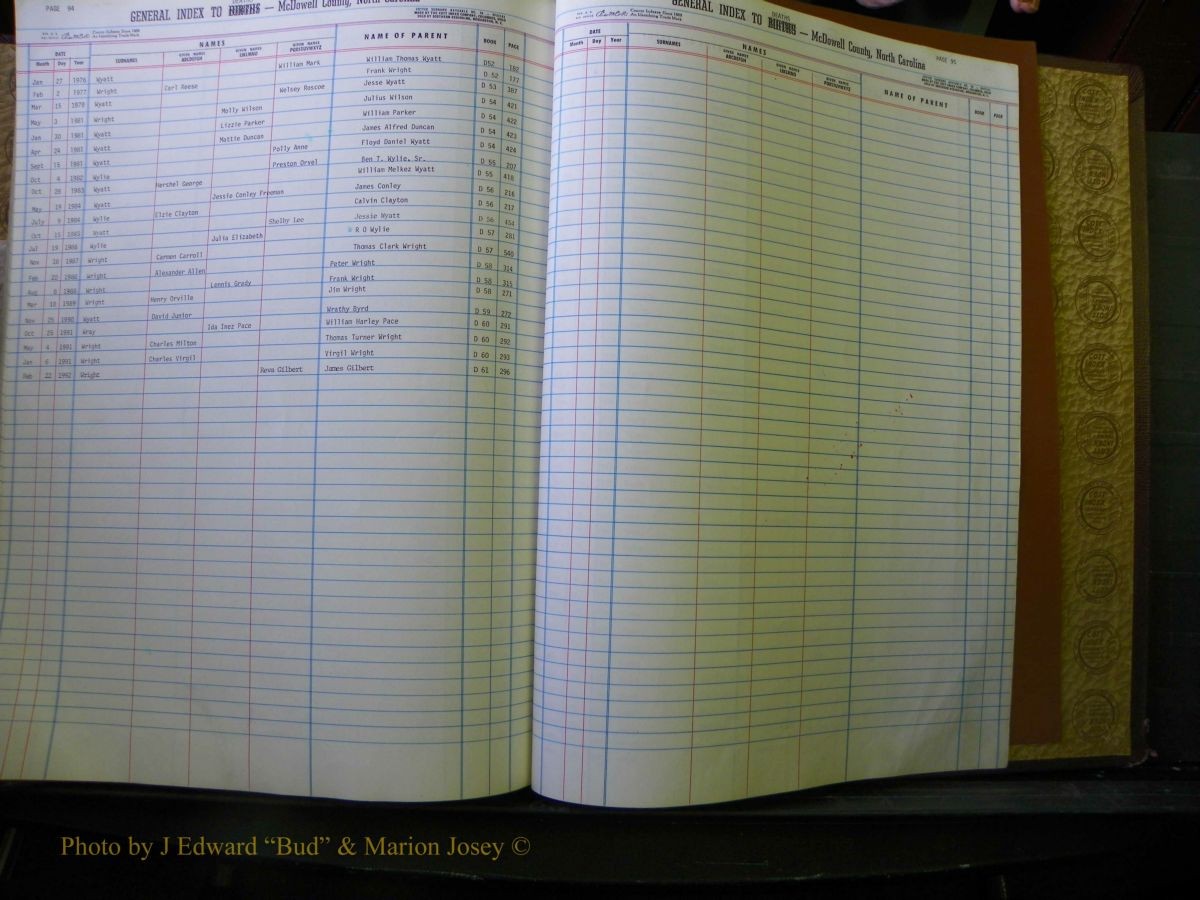 PAGE 94
DEATHS
GENERAL INDEX TO BIRTHS — McDowell County, North Carolina
DATE
NAMES
NAME OF PARENT
BOOK
PAGE
Month Day Year
SURNAMES
GIVEN NAMES ABCDEFGH
GIVEN NAMES IJKLMNO
GIVEN NAMES PQRSTUVWXYZ
Jan 27 1976 Wyatt William Mark William Thomas Wyatt D52 182
Feb 2 1977 Wright Carl Reese Frank Wright D 52 177
Mar 15 1978 Wyatt Welsey Roscoe Jesse Wyatt D 53 387
May 3 1981 Wright Molly Wilson Julius Wilson D 54 421
Jan 30 1981 Wyatt Lizzie Parker William Parker D 54 422
Apr 24 1981 Wyatt Mattie Duncan James Alfred Duncan D 54 423
Sept 15 1981 Wyatt Polly Anne Floyd Daniel Wyatt D 54 424
Oct 4 1982 Wylie Preston Orvel Ben T. Wylie, Sr. D 55 207
Oct 28 1983 Wyatt Hershel George William Melkez Wyatt D 55 418
May 19 1984 Wyatt Jessie Conley Freeman James Conley D 56 216
July 9 1984 Wylie Elzie Clayton Calvin Clayton D 56 217
Oct 15 1985 Wyatt Shelby Lee Jessie Wyatt D 56 454
Jul 19 1986 Wylie Julia Elizabeth R O Wylie D 57 281
Nov 1987 Wright Carmon Carroll Thomas Clark Wright D 57 540
Feb 22 1988 Wright Alexander Allen Peter Wright D 58 314
Aug 8 1988 Wright Lonnis Grady Frank Wright D 58 315
Mar 18 1989 Wright Henry Orville Jim Wright D 58 271
Nov 25 1990 Wyatt David Junior Wrathy Byrd D 59 272
Oct 25 1991 Wray Ida Inez Pace William Harley Pace D 60 291
May 4 1991 Wright Charles Milton Thomas Turner Wright D 60 292
Jan 6 1991 Wright Charles Virgil Virgil Wright D 60 293
Feb 22 1992 Wright Reva Gilbert James Gilbert D 61 296
DEATHS
GENERAL INDEX TO BIRTHS — McDowell County, North Carolina
PAGE 95
DATE
NAMES
NAME OF PARENT
BOOK
PAGE
Month Day Year
SURNAMES
GIVEN NAMES ABCDEFGH
GIVEN NAMES IJKLMNO
GIVEN NAMES PQRSTUVWXYZ
Photo by J Edward “Bud” & Marion Josey ©